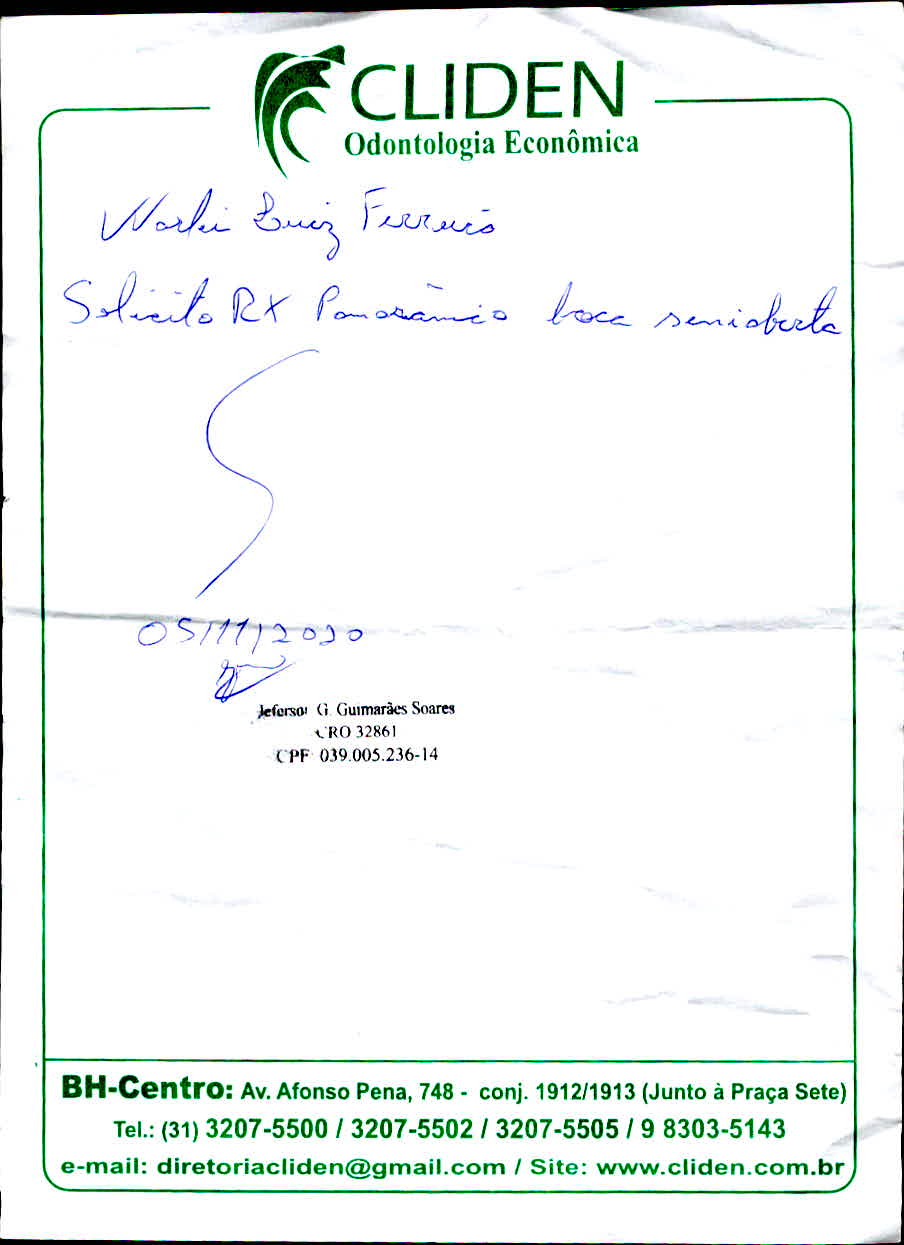 CLIDEN
Odontologia Econômica
Luiz Ferreira
Solicito RX Panorâmico boca semiaberta
05/11/2020
Jeferson G. Guimarães Soares
CRO 32861
CPF 039.005.236-14
BH-Centro: Av. Afonso Pena, 748 - conj. 1912/1913 (Junto à Praça Sete)
Tel.: (31) 3207-5500 / 3207-5502 / 3207-5505 / 9 8303-5143
e-mail: diretoriacliden@gmail.com / Site: www.cliden.com.br